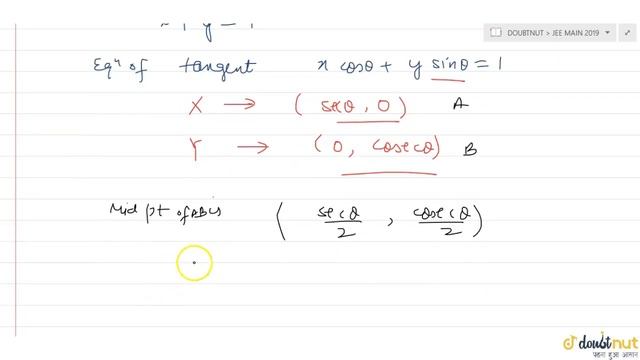 DOUBTNUT > JEE MAIN 2019
Eqⁿ of tangent x cosθ + y sinθ = 1
X → ( secθ , 0 ) A
Y → ( 0 , cosecθ ) B
Mid pt of AB is ( secθ/2 , cosecθ/2 )
doubtnut
पढ़ना हुआ आसान